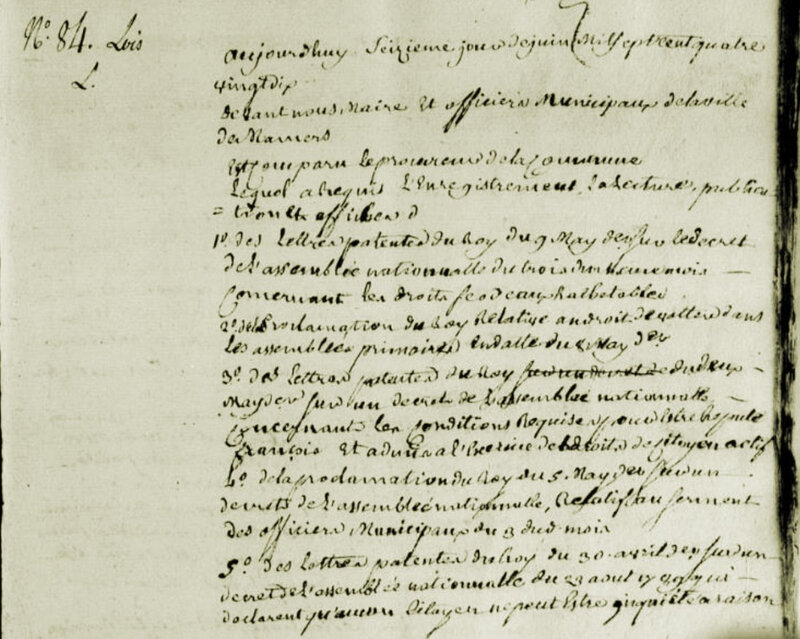 N.º 84. Lois
L.
aujourdhuy Seizieme jour dejuin Milseptcent quatre
vingtdix
devant nous Maire Et officiers Municipaux delaville
de Mamers
Est Comparu leprocureur delaCommune
lequel arequis L'Enregistrement, lalecture, publica
= tion Et affiches d
1º. des Lettres patentes du Roy du 9 May der sur ledecret
del'assemblée nationnalle du trois du meme mois —
Concernant les droits feodeaux Rachetables
2º. del Proclamation du Roy Relative audroit de dans
les assemblées primaires Endatte du May der
3º. des Lettres patentes du Roy sur un decret de dudeux —
May der sur un decret de L'assemblée nationnalle —
Concernant les Conditions Requises pour Estre Reputé
françois Et admis a l'Exercice dedroits decitoyen actif
4º. delaproclamation du Roy du 5. May der sur un
decrets deL'assemblée nationnalle, Relatif au serment
des officiers Municipaux du 3 dud. mois
5º. des Lettres patentes du Roy du 30 avril der sur un
decret deL'assemblée nationnalle du 23 aout 1789 qui —
declarent qu'aucun Citoyen nepeut Estre inquiété araison